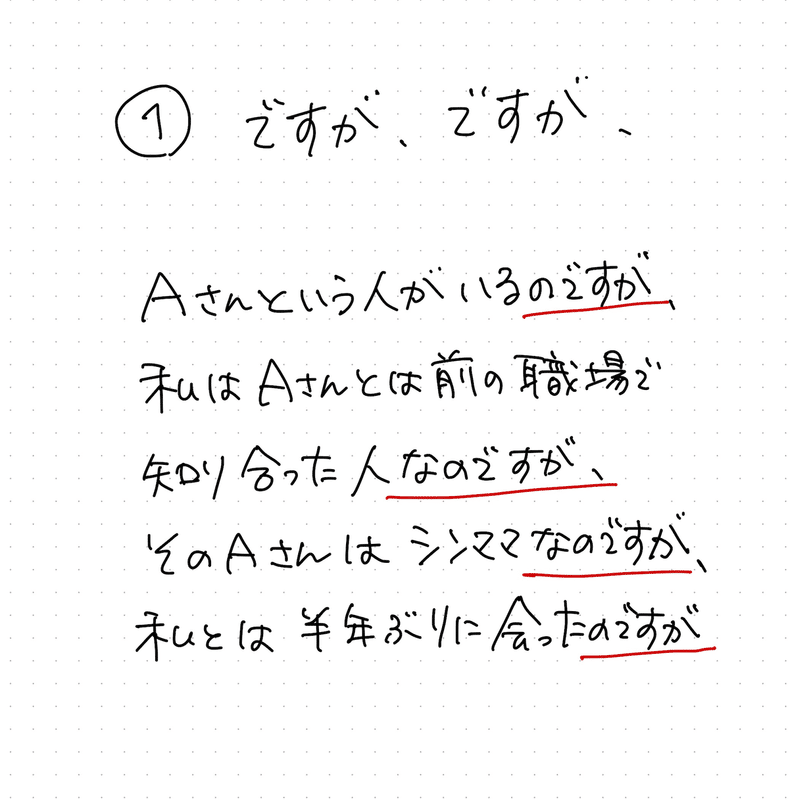 ① ですが、ですが、
Aさんという人がいるのですが、
私はAさんとは前の職場で
知り合った人なのですが、
そのAさんはシンママなのですが、
私とは半年ぶりに会ったのですが